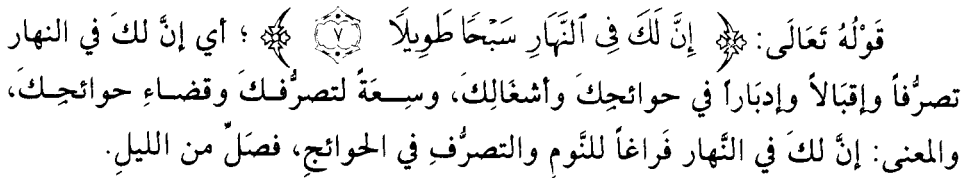 قَوْلُهُ تَعَالَى: ﴿ إِنَّ لَكَ فِى ٱلنَّهَارِ سَبْحًا طَوِيلًا ۝٧ ﴾ ؛ أي إنَّ لكَ في النهار
تصرُّفاً وإقبَالاً وإدبَاراً في حوائجِكَ وأشغَالِكَ، وسِعَةً لتصرُّفكَ وقضاءِ حوائجِكَ،
والمعنى: إنَّ لكَ في النَّهار فَراغاً للنَّومِ والتصرُّفِ في الحوائجِ، فصَلِّ من الليلِ.